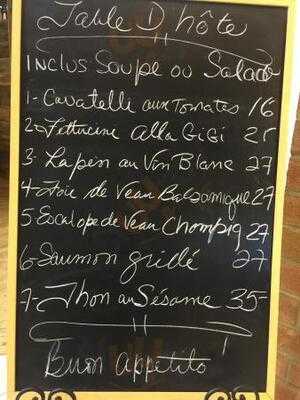 Table D'hôte
INCLUS Soupe ou Salade
1- Cavatelli aux Tomates 16
2- Fettucine alla GiGi 25
3- Lapin au Vin Blanc 27
4- Foie de Veau Balsamique 27
5- Escalope de Veau Champig 27
6- Saumon grillé 27
7- Thon au Sésame 35-
Buon Appetito